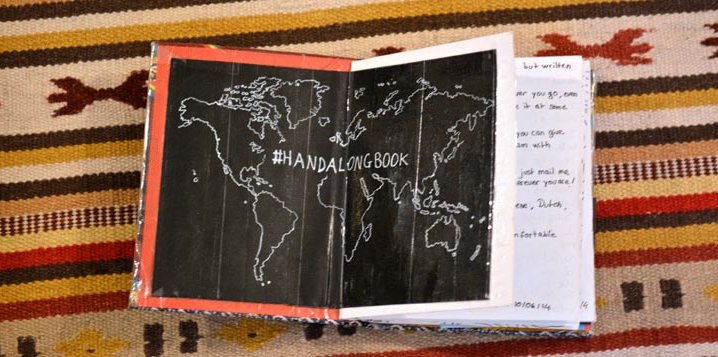 #HANDALONGBOOK
but written
ver you go, even
e it at some
you can give
am with
just mail me
erever you are!
ese, Dutch,
nfortable
10/06/14
14